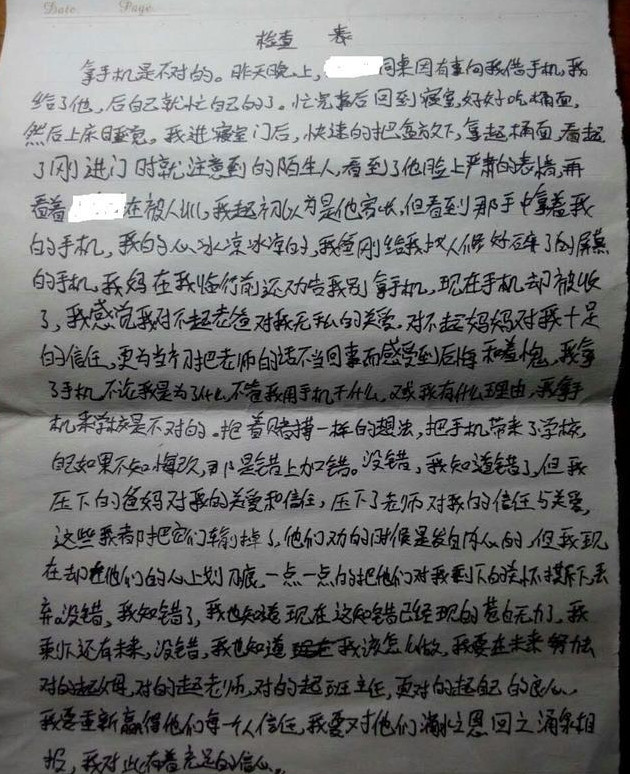 Date Page
检查 表
拿手机是不对的。昨天晚上, 同桌因有事向我借手机,我
给了他,后自己就忙自己的了。忙完事后回到寝室,好好吃桶面,
然后上床睡觉。我进寝室门后,快速的把盒放下,拿起桶面,看起
了刚进门时就注意到的陌生人,看到了他脸上严肃的表情,再
看着 在被人训,我起初以为是他家长,但看到那手中拿着我
的手机,我的心冰凉冰凉的,我刚给我
的手机,我妈在我临行前还劝告我别拿手机,现在手机却被收
了,我感觉我对不起老爸对我无私的关爱,对不起妈妈对我十足
的信任,更为当初把老师的话不当回事而感受到后悔和羞愧,我拿
了手机不论我是为了什么,不管我用手机干什么,或我有什么理由,我拿手
机来学校是不对的。抱着赌博一样的想法,把手机带来了学校,
的如果不知悔改,那是错上加错。没错,我知道错了,但我
压下的爸妈对我的关爱和信任,压下了老师对我的信任与关爱,
这些我都把它们输掉了,他们劝的时候是发自内心的,但我现
在却在他们的心上划刀痕,一点一点的把他们对我剩下的关怀撕下,丢
弃。没错,我知错了,我也知道现在这知错已经现的苍白无力了,我
剩下还有未来,没错,我也知道我该怎么做,我要在未来努力
对的起父母,对的起老师,对的起班主任,更对的起自己的良心。
我要重新赢得他们每一个人信任,我要对他们滴水之恩回之涌泉相
报,我对此有着充足的信心。